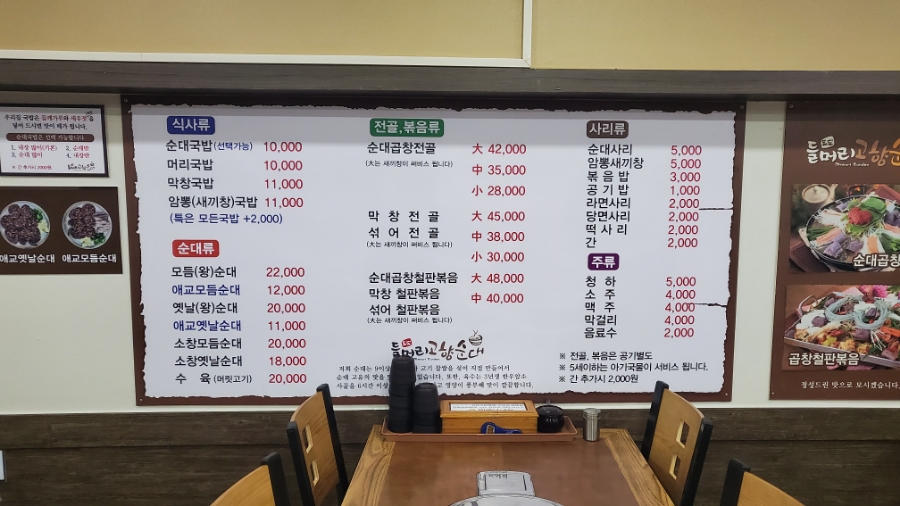 우리집 국밥은 들깨가루와 새우젓을
넣어 드시면 맛이 배가 됩니다.
순대국밥은 선택 가능합니다
1. 내장 많이(기본) 2. 순대만
3. 순대 많이 4. 내장만
애교옛날순대 애교모듬순대
식사류
순대국밥(선택가능) 10,000
머리국밥 10,000
막창국밥 11,000
암뽕(새끼창)국밥 11,000
(특은 모든국밥 +2,000)
순대류
모듬(왕)순대 22,000
애교모듬순대 12,000
옛날(왕)순대 20,000
애교옛날순대 11,000
소창모듬순대 20,000
소창옛날순대 18,000
수 육(머릿고기) 20,000
전골,볶음류
순대곱창전골 大 42,000
(大는 새끼창이 써비스 됩니다)
中 35,000
小 28,000
막 창 전 골 大 45,000
섞 어 전 골 中 38,000
(大는 새끼창이 써비스 됩니다)
小 30,000
순대곱창철판볶음 大 48,000
막창 철판볶음 中 40,000
섞어 철판볶음
(大는 새끼창이 써비스 됩니다)
들머리고향순대
저희 순대는
사리류
순대사리 5,000
암뽕새끼창 5,000
볶 음 밥 3,000
공 기 밥 1,000
라면사리 2,000
당면사리 2,000
떡 사 리 2,000
간 2,000
주류
청 하 5,000
소 주 4,000
맥 주 4,000
막걸리 4,000
음료수 2,000
※ 전골, 볶음은 공기별도
※ 5세이하는 아가국물이 서비스 됩니다.
※ 간 추가시 2,000원
들머리고향순
순대곱창
곱창철판볶음
정성드린 맛으로 모시겠습니